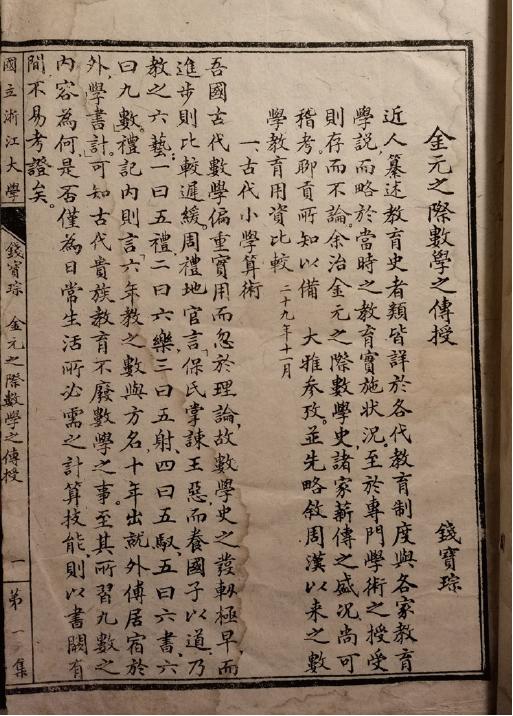 金元之際數學之傳授
錢寶琮
近人纂述教育史者類皆詳於各代教育制度與各家教育
學説而略於當時之教育實施狀况。至於專門學術之授受
則存而不論。余治金元之際數學史，諸家薪傳之盛况，尚可
稽考。聊貢所知以備　大雅参攷。並先略敘周漢以來之數
學教育用資比較　二十九年十一月
一、古代小學算術
吾國古代數學偏重實用而忽於理論，故數學史之發軔極早，而
進步則比較遲緩。周禮地官言「保氏掌諫王惡而養國子以道，乃
教之六藝：一曰五禮，二曰六樂，三曰五射，四曰五馭，五曰六書，六
曰九數。」禮記内則言「六年教之數與方名，十年出就外傅，居宿於
外，學書計」可知古代貴族教育不廢數學之事。至其所習九數之
内容為何，是否僅為日常生活所必需之計算技能，則以書闕有
間，不易考證矣。
國立浙江大學
錢寶琮　金元之際數學之傳授
一
第一集